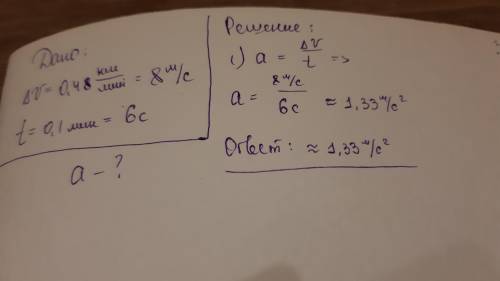 Дано:
ΔV = 0,48 км/мин = 8 м/с
t = 0,1 мин = 6с
a - ?
Решение:
1) a = ΔV/t =>
a = 8 м/с / 6с ≈ 1,33 м/с²
Ответ: ≈ 1,33 м/с²